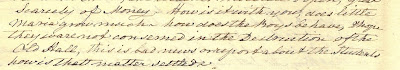 Scarcely of Money - How is it with you, does little
Maria grow much - how does the Boys behave, I hope
they were not conserned in the Destruction of the
Old Hall, this is bad news or report about the Students
how is that matter settled.